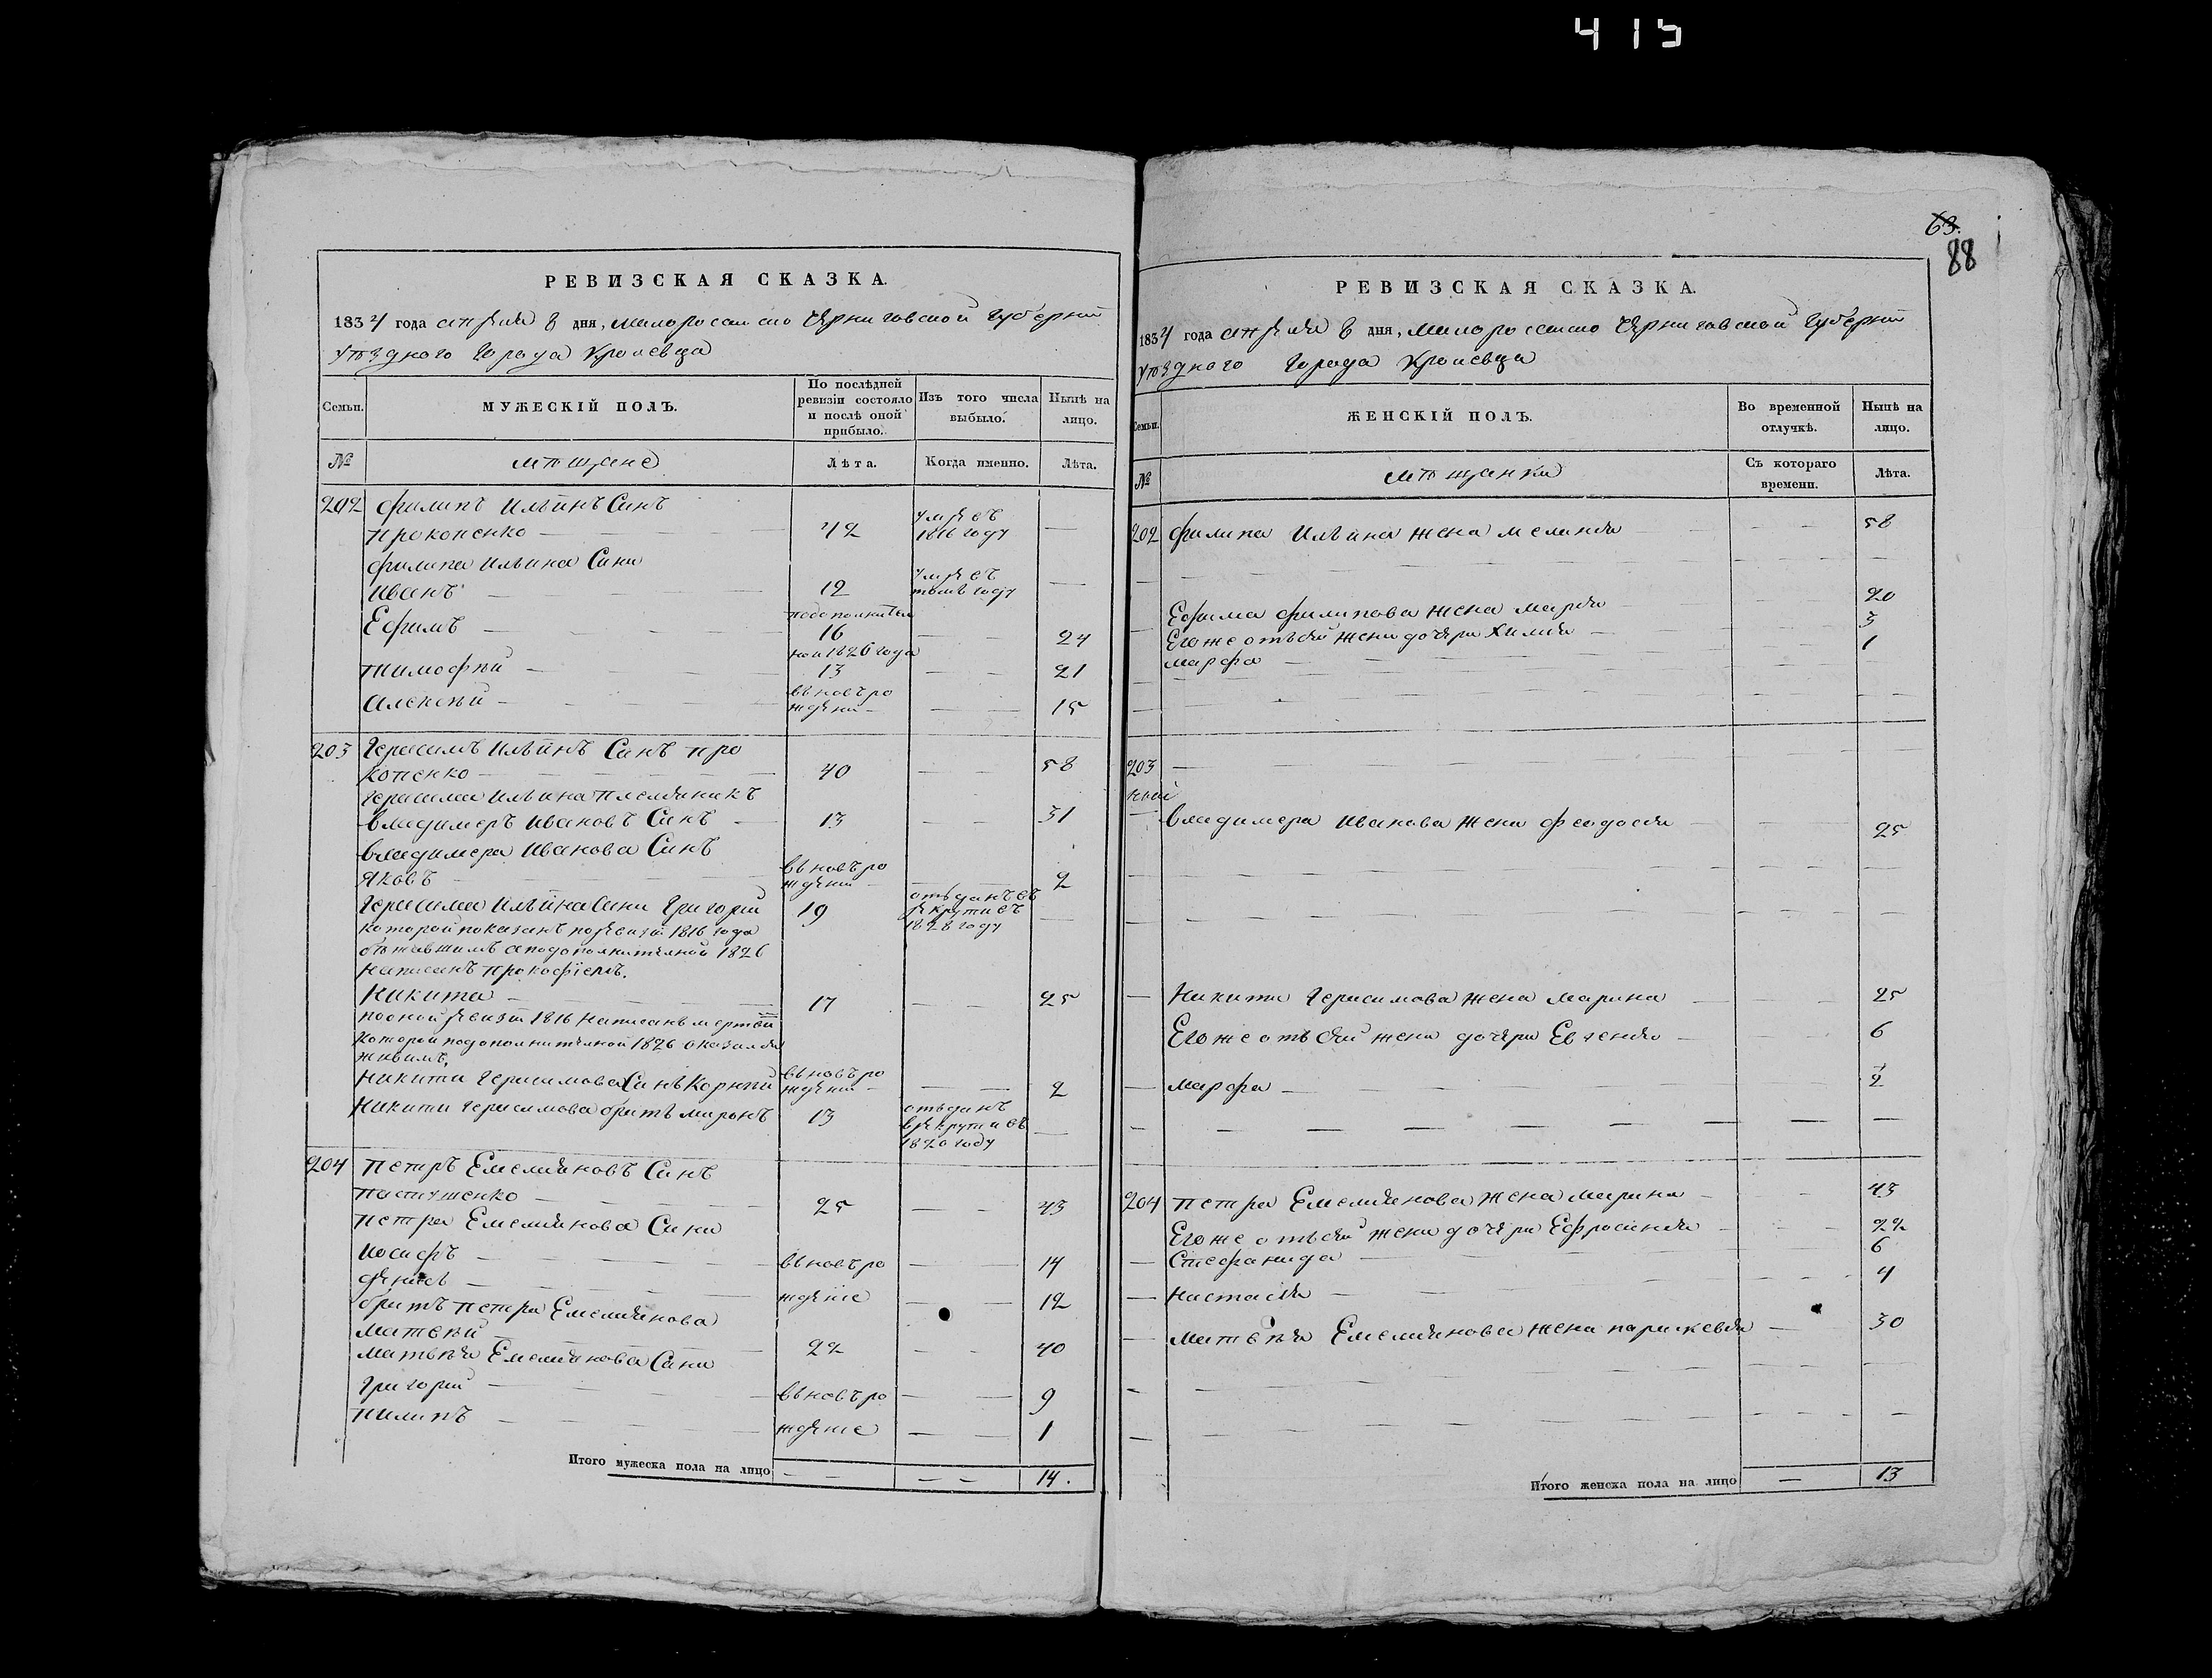 415
РЕВИЗСКАЯ СКАЗКА.
1834 года апреля 8 дня, малороссииско Черниговской Губернии
уѣзднаго Города Кролевца
Семьи.
МУЖЕСКІЙ ПОЛЪ.
По послѣдней ревизіи состояло и послѣ оной прибыло.
Изъ того числа выбыло.
Нынѣ на лицо.
№
мѣщане
Лѣта.
Когда именно.
Лѣта.
202 филипъ Ильинъ Синъ
прокопенко — 42 умре въ 1816 году —
филипа Ильина Сини
иванъ — 12 умре въ томъ году —
Ефимъ — 16 — 24
тимофѣй — 13 — 21
алексѣй — вь новъ рождени — 15
203 Герасимъ Ильинъ Синъ про
копенко — 40 — 58
герасима Ильина племяникъ
владимеръ Ивановъ Синъ — 13 — 31
владимера Иванова Синъ
Яковъ — вь новъ рождени — 2
Герасима Ильина Сини Григорий 19 отъданъ въ рекрути въ 1828 году —
которой показанъ по ревизii 1816 года
бѣжавшимъ а подополнителной 1826
написанъ прокофiемъ.
Никита — 17 — 25
по оной ревизii 1816 написанъ мертви
которой подополнителной 1826 оказался
живимъ,
Никити Герасимова Синъ Корнѣй вь новъ рождени — 2
Никити герасимова братъ миронъ 13 отъданъ в рекрути въ 1820 году —
204 петръ Емелияновъ Синъ
пастушенко — 25 — 43
петра Емелиянова Сини
Иосифъ — вь новъ ро — 14
денисъ — ждение — 12
братъ петра Емелиянова
Матвѣй — 22 — 40
матвѣя Емелиянова Сини
Григорий — вь новъ ро — 9
пилипъ — ждение — 1
Итого мужеска пола на лицо — — 14.
63.
88
РЕВИЗСКАЯ СКАЗКА.
1834 года апреля 8 дня, малороссииско Черниговской Губернии
уѣзднаго Города Кролевца
Семьи.
ЖЕНСКІЙ ПОЛЪ.
Во временной отлучкѣ.
Нынѣ на лицо.
№
мѣщанки
Съ котораго времени.
Лѣта.
202 филипа Ильина жена меланья — 58
Ефима филипова жена марья — 20
Его же отъ сей жени дочери Химия — 3
марфа — 1
203
владимера Иванова жена феодосия — 25
Никити Герасимова жена марина — 25
Его же отъ сей жени дочери Евгения — 6
марфа — 2
204 петра Емелиянова жена марина — 43
Его же отъ сей жени дочери Ефросиния — 22
Стефанида — 6
Настасия — 4
матвѣя Емелиянова жена параскевия — 30
Итого женска пола на лицо — 13